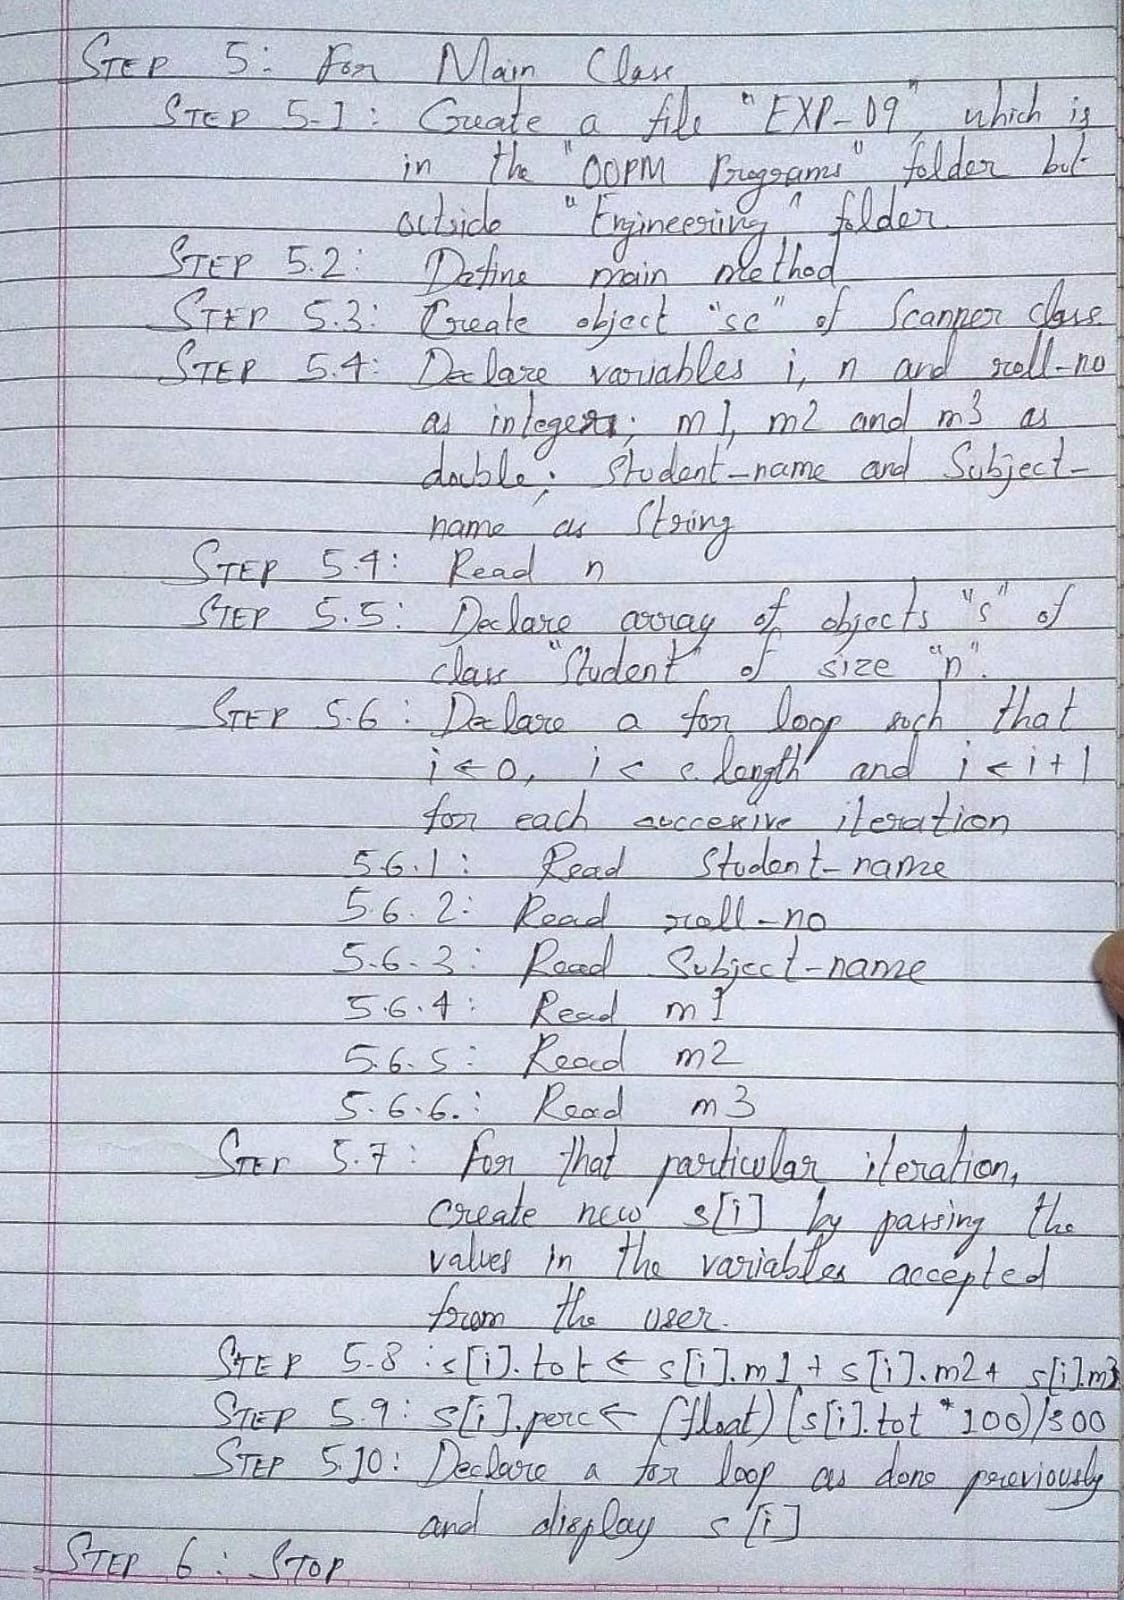 STEP 5: For Main Class
STEP 5.1: Create a file "EXP-09" which is
in the "OOPM Programs" folder but
outside "Engineering" folder.
STEP 5.2: Define main method
STEP 5.3: Create object "sc" of Scanner class.
STEP 5.4: Declare variables i, n and roll-no
as integer; m1, m2 and m3 as
double; Student-name and Subject-
name as String
STEP 5.4: Read n
STEP 5.5: Declare array of objects "s" of
class "Student" of size "n".
STEP 5.6: Declare a for loop such that
i←0, i < s.length and i←i+1
for each successive iteration
5.6.1: Read Student-name
5.6.2: Read roll-no
5.6.3: Read Subject-name
5.6.4: Read m1
5.6.5: Read m2
5.6.6.: Read m3
STEP 5.7: For that particular iteration,
create new s[i] by parsing the
values in the variables accepted
from the user.
STEP 5.8: s[i].tot ← s[i].m1 + s[i].m2 + s[i].m3
STEP 5.9: s[i].perc ← (float)(s[i].tot * 100)/300
STEP 5.10: Declare a for loop as done previously
and display s[i]
STEP 6: STOP